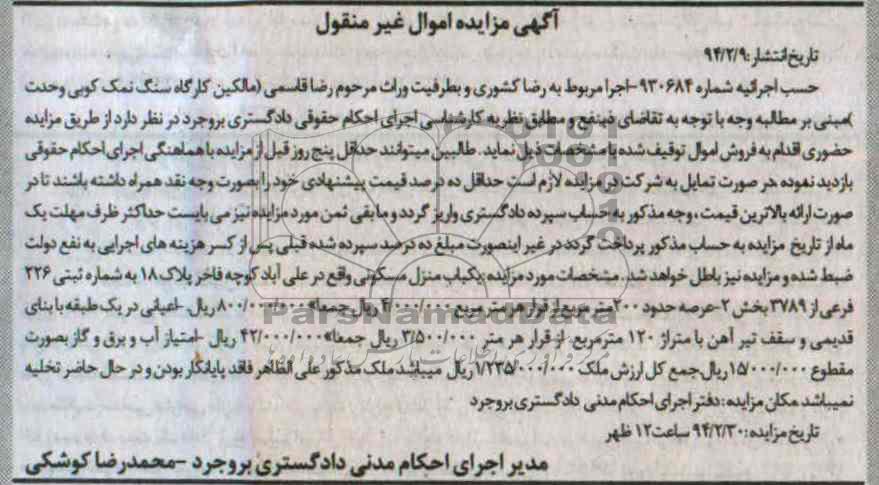 آگهی مزایده اموال غیر منقول
تاریخ انتشار:۹۴/۲/۹
حسب اجرائیه شماره ۹۳۰۶۸۴-اجرا مربوط به رضا کشوری و بطرفیت وراث مرحوم رضا قاسمی (مالکین کارگاه سنگ نمک کوبی وحدت
)مبنی بر مطالبه وجه با توجه به تقاضای ذینفع و مطابق نظریه کارشناسی اجرای احکام حقوقی دادگستری بروجرد در نظر دارد از طریق مزایده
حضوری اقدام به فروش اموال توقیف شده با مشخصات ذیل نماید . طالبین میتوانند حداقل پنج روز قبل از مزایده با هماهنگی اجرای احکام حقوقی
بازدید نموده .در صورت تمایل به شرکت در مزایده لازم است حداقل ده درصد قیمت پیشنهادی خود را بصورت وجه نقد همراه داشته باشند تا در
صورت ارائه بالاترین قیمت ، وجه مذکور به حساب سپرده دادگستری واریز گردد و مابقی ثمن مورد مزایده نیز می بایست حداکثر ظرف مهلت یک
ماه از تاریخ مزایده به حساب مذکور پرداخت گردد در غیر اینصورت مبلغ ده درصد سپرده شده قبلی پس از کسر هزینه های اجرایی به نفع دولت
ضبط شده و مزایده نیز باطل خواهد شد. مشخصات مورد مزایده:یکباب منزل مسکونی واقع در علی آباد کوچه فاخر پلاک ۱۸ به شماره ثبتی ۲۲۶
فرعی از ۳۷۸۹ بخش ۲-عرصه حدود ۲۰۰متر مربع از قرار هر متر مربع ۴/۰۰۰/۰۰۰ ریال جمعا»۸۰۰/۰۰۰/۰۰۰ ریال. -اعیانی در یک طبقه با بنای
قدیمی و سقف تیر آهن با متراژ ۱۲۰ مترمربع. از قرار هر متر ۳/۵۰۰/۰۰۰ ریال جمعا»۴۲/۰۰۰/۰۰۰ ریال -امتیاز آب و برق و گاز بصورت
مقطوع ۱۵/۰۰۰/۰۰۰ریال.جمع کل ارزش ملک ۱/۲۳۵/۰۰۰/۰۰۰ ریال میباشد ملک مذکور علی الظاهر فاقد پایانکار بودن و در حال حاضر تخلیه
نمیباشد.مکان مزایده : دفتر اجرای احکام مدنی دادگستری بروجرد
تاریخ مزایده:۹۴/۲/۳۰ ساعت۱۲ ظهر
مدیر اجرای احکام مدنی دادگستری بروجرد -محمدرضا کوشکی
ParsNamadData